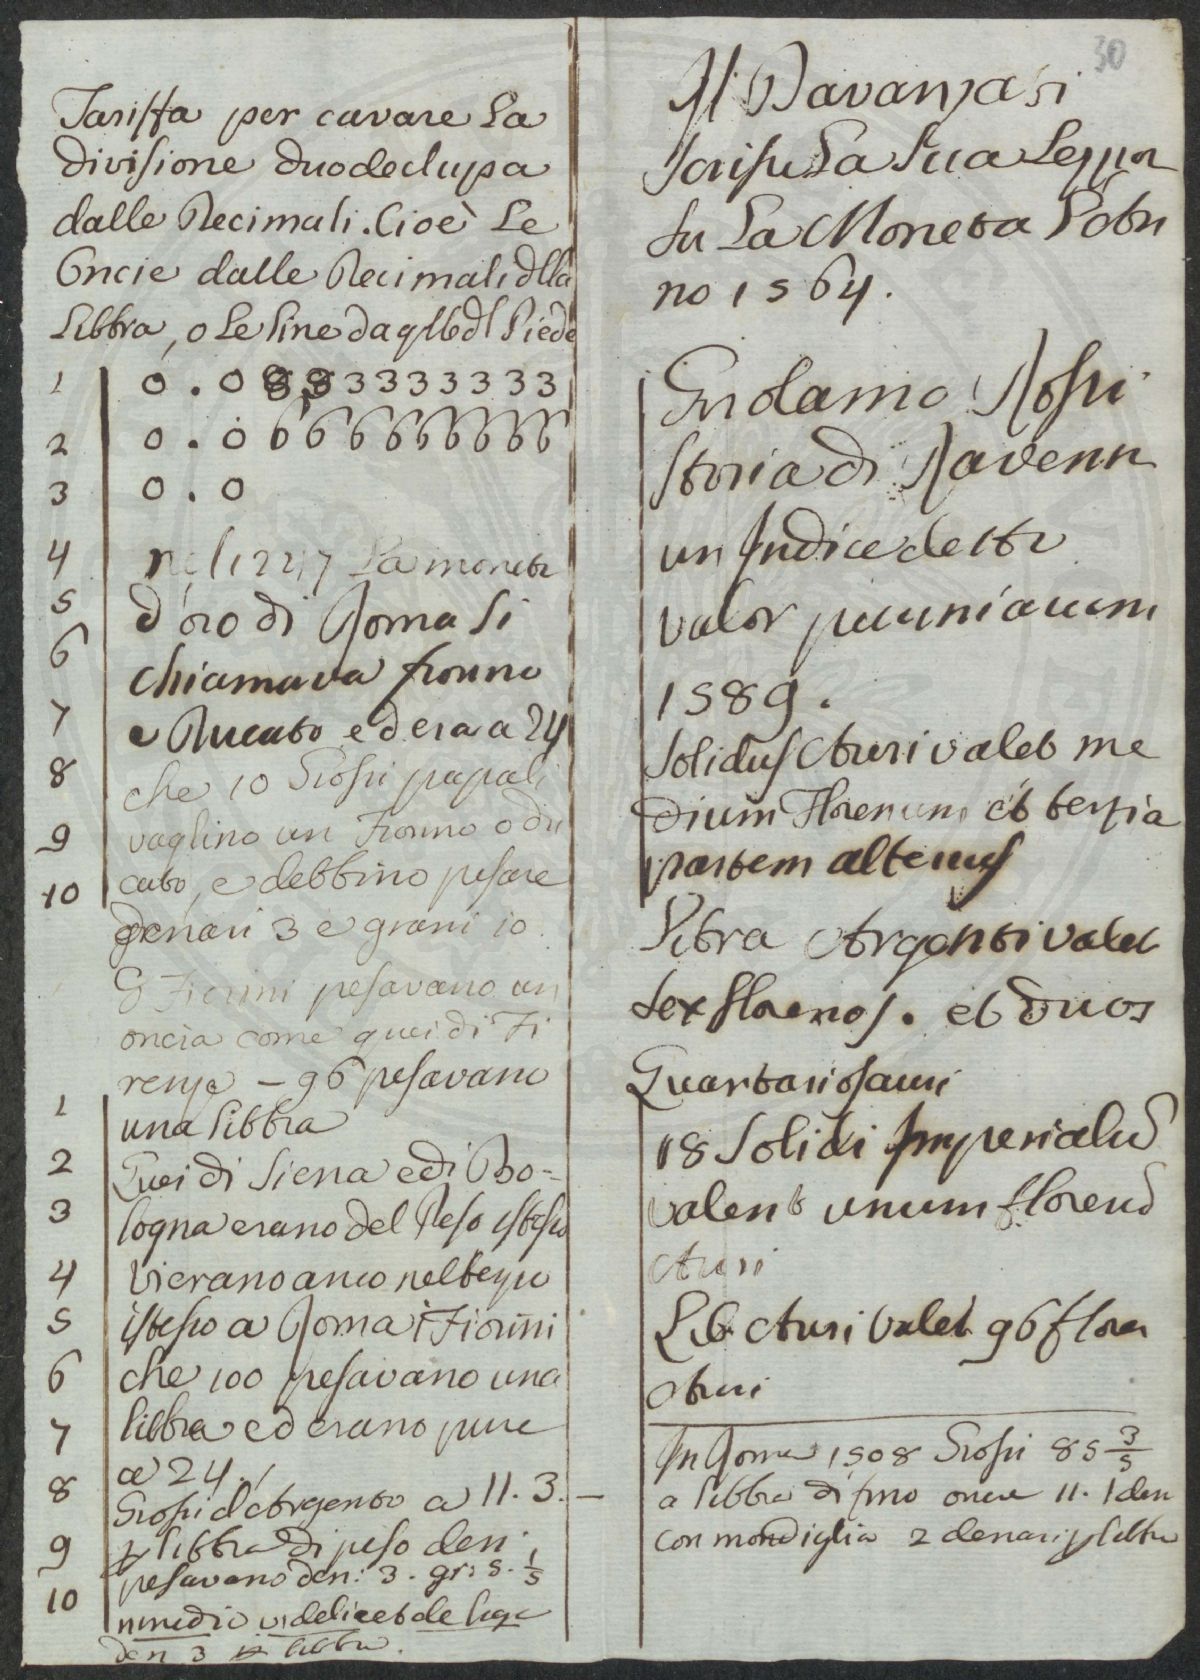 Tariffa per cavare La
divisione duodeclupa
dalle Decimali. Cioè Le
Oncie dalle Decimali dlla
Libbra, o Le line da qlle dl Piede
1 0.0833333333
2 0.06666666666
3 0.0
4 nel 1247 La moneta
5 d'oro di Roma si
6 chiamava fiorino
7 e Ducato ed era a 24
8 che 10 Grossi papali
9 vaglino un Fiorino o du
10 cato, e debbino pesare
denari 3 e grani 10.
8 Fiorini pesavano un
oncia come quei di Fi
renze - 96 pesavano
1 una libbra
2 Quei di Siena e di Bo=
3 logna erano del Peso istesso
4 vi erano anco nel tempo
5 istesso a Roma i Fiorini
6 che 100 pesavano una
7 libbra ed erano pure
a 24.
8 Grossi d'Argento a 11.3.—
9 p libbra di peso den:
pesavano den: 3. gr: 5. 1/5
10 rimedio videlicet de liga
den 3 p libbra.
30
Il Davanzati
scrisse La sua Lezzon
su La Moneta L'otu
no 1564.
Girolamo Rossi
Storia di Ravenn
un Indice detto
valor pecuniarum
1589.
Solidus Auri valet me
dium Florenum et tertia
partem alterius
Libra Argenti valet
sex florenos. et duos
Quartarios auri
18 Solidi Imperialiū
valent unum florenū
Auri
Lib Auri valet 96 flore
Auri
In Roma 1508 Grossi 85 3/5
a libbra di fino oncie 11. 1 den
con mondiglia 2 denari p libbra